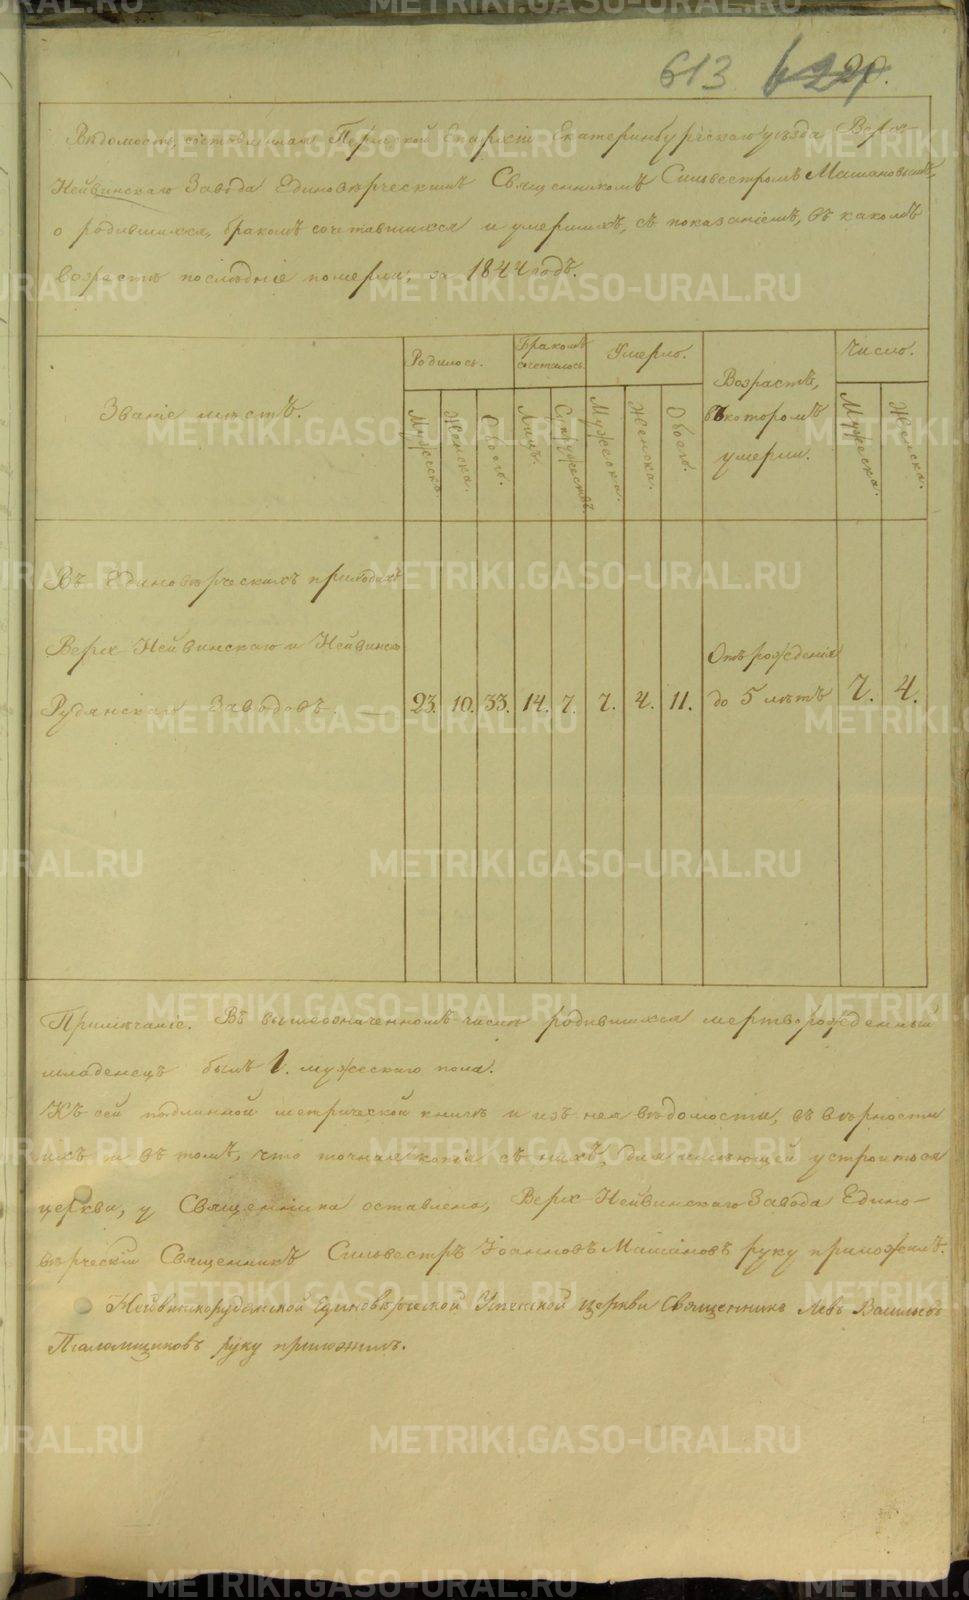 METRIKI.GASO-URAL.RU
613
20.
Вѣдомость, составленная Пермской Епархіи Екатеринбургскаго уѣзда Верх-
Нейвинскаго Завода Единовѣрческимъ Священникомъ Сильвестромъ Машановымъ,
о родившихся, бракомъ сочетавшихся и умершихъ, съ показаніемъ, въ какомъ
возрастѣ послѣдніе померли, за 1844 годъ.
Званіе мѣстъ.
Родилось.
Бракомъ сочеталось.
Умерло.
Возрастъ, въ которомъ умерли.
Число.
Мужеска.
Женска.
Обоего.
Лицъ.
Супружествъ.
Мужеска.
Женска.
Обоего.
Мужеска.
Женска.
Въ Единовѣрческихъ приходахъ
Верх-Нейвинскаго и Нейвинско
Рудянскаго Заводовъ. 23. 10. 33. 14. 7. 7. 4. 11. Отъ рожденія до 5 лѣтъ 7. 4.
Примѣчаніе. Въ вышеозначенномъ числѣ родившихся мертворожденный
младенецъ былъ 1. мужескаго пола.
Къ сей подлинной метрической книгѣ и изъ нея вѣдомости, въ вѣрности
ихъ и въ томъ, что точная копія съ нихъ, для имѣющей устроиться
церкви, у Священника оставлена, Верх-Нейвинскаго Завода Едино-
вѣрческій Священникъ Сильвестръ Іоанновъ Машановъ руку приложилъ.
Нейвинскорудянской Единовѣрческой Успенской церкви Священникъ Левъ Васильевъ
Пталомщиковъ руку приложилъ.